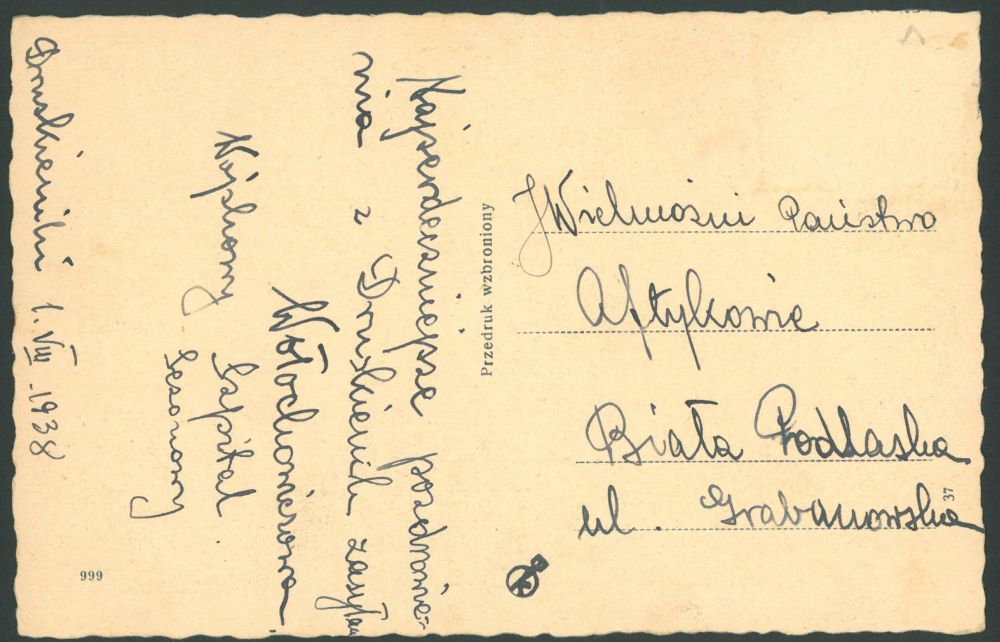 Druskieniki 1.VIII.1938
Najserdeczniejsze pozdrowie-
nia z Druskienik zasyłam
Wołochowiczowa.
Wojskowy Szpital
Sezonowy
999
Przedruk wzbroniony
JWielmożni Państwo
Aftykowie
Biała Podlaska
ul. Grabanowska
37